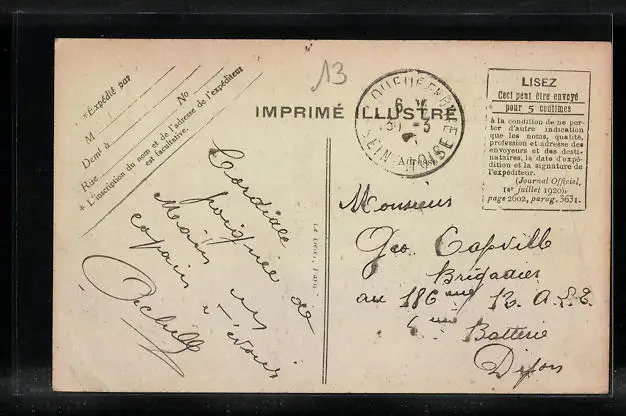 13
*Expédié par
M
No
Demt à
Rue
* L'inscription du nom et de l'adresse de l'expéditeur
est facultative.
IMPRIMÉ ILLUSTRÉ
6
30 - 5
SEINE-ET-OISE
Adresse
LISEZ
Ceci peut être envoyé
pour 5 centimes
à la condition de ne por-
ter d'autre indication
que les noms, qualité,
profession et adresse des
envoyeurs et des desti-
nataires, la date d'expé-
dition et la signature de
l'expéditeur.
(Journal Officiel,
1er juillet 1920)
page 2602, parag. 3631.
Cordiale
poignée de
Mains
un
copain
Achille
Monsieur
Geo Capville
Brigadier
au 186 me R. A. L. T.
Batterie
Dijon